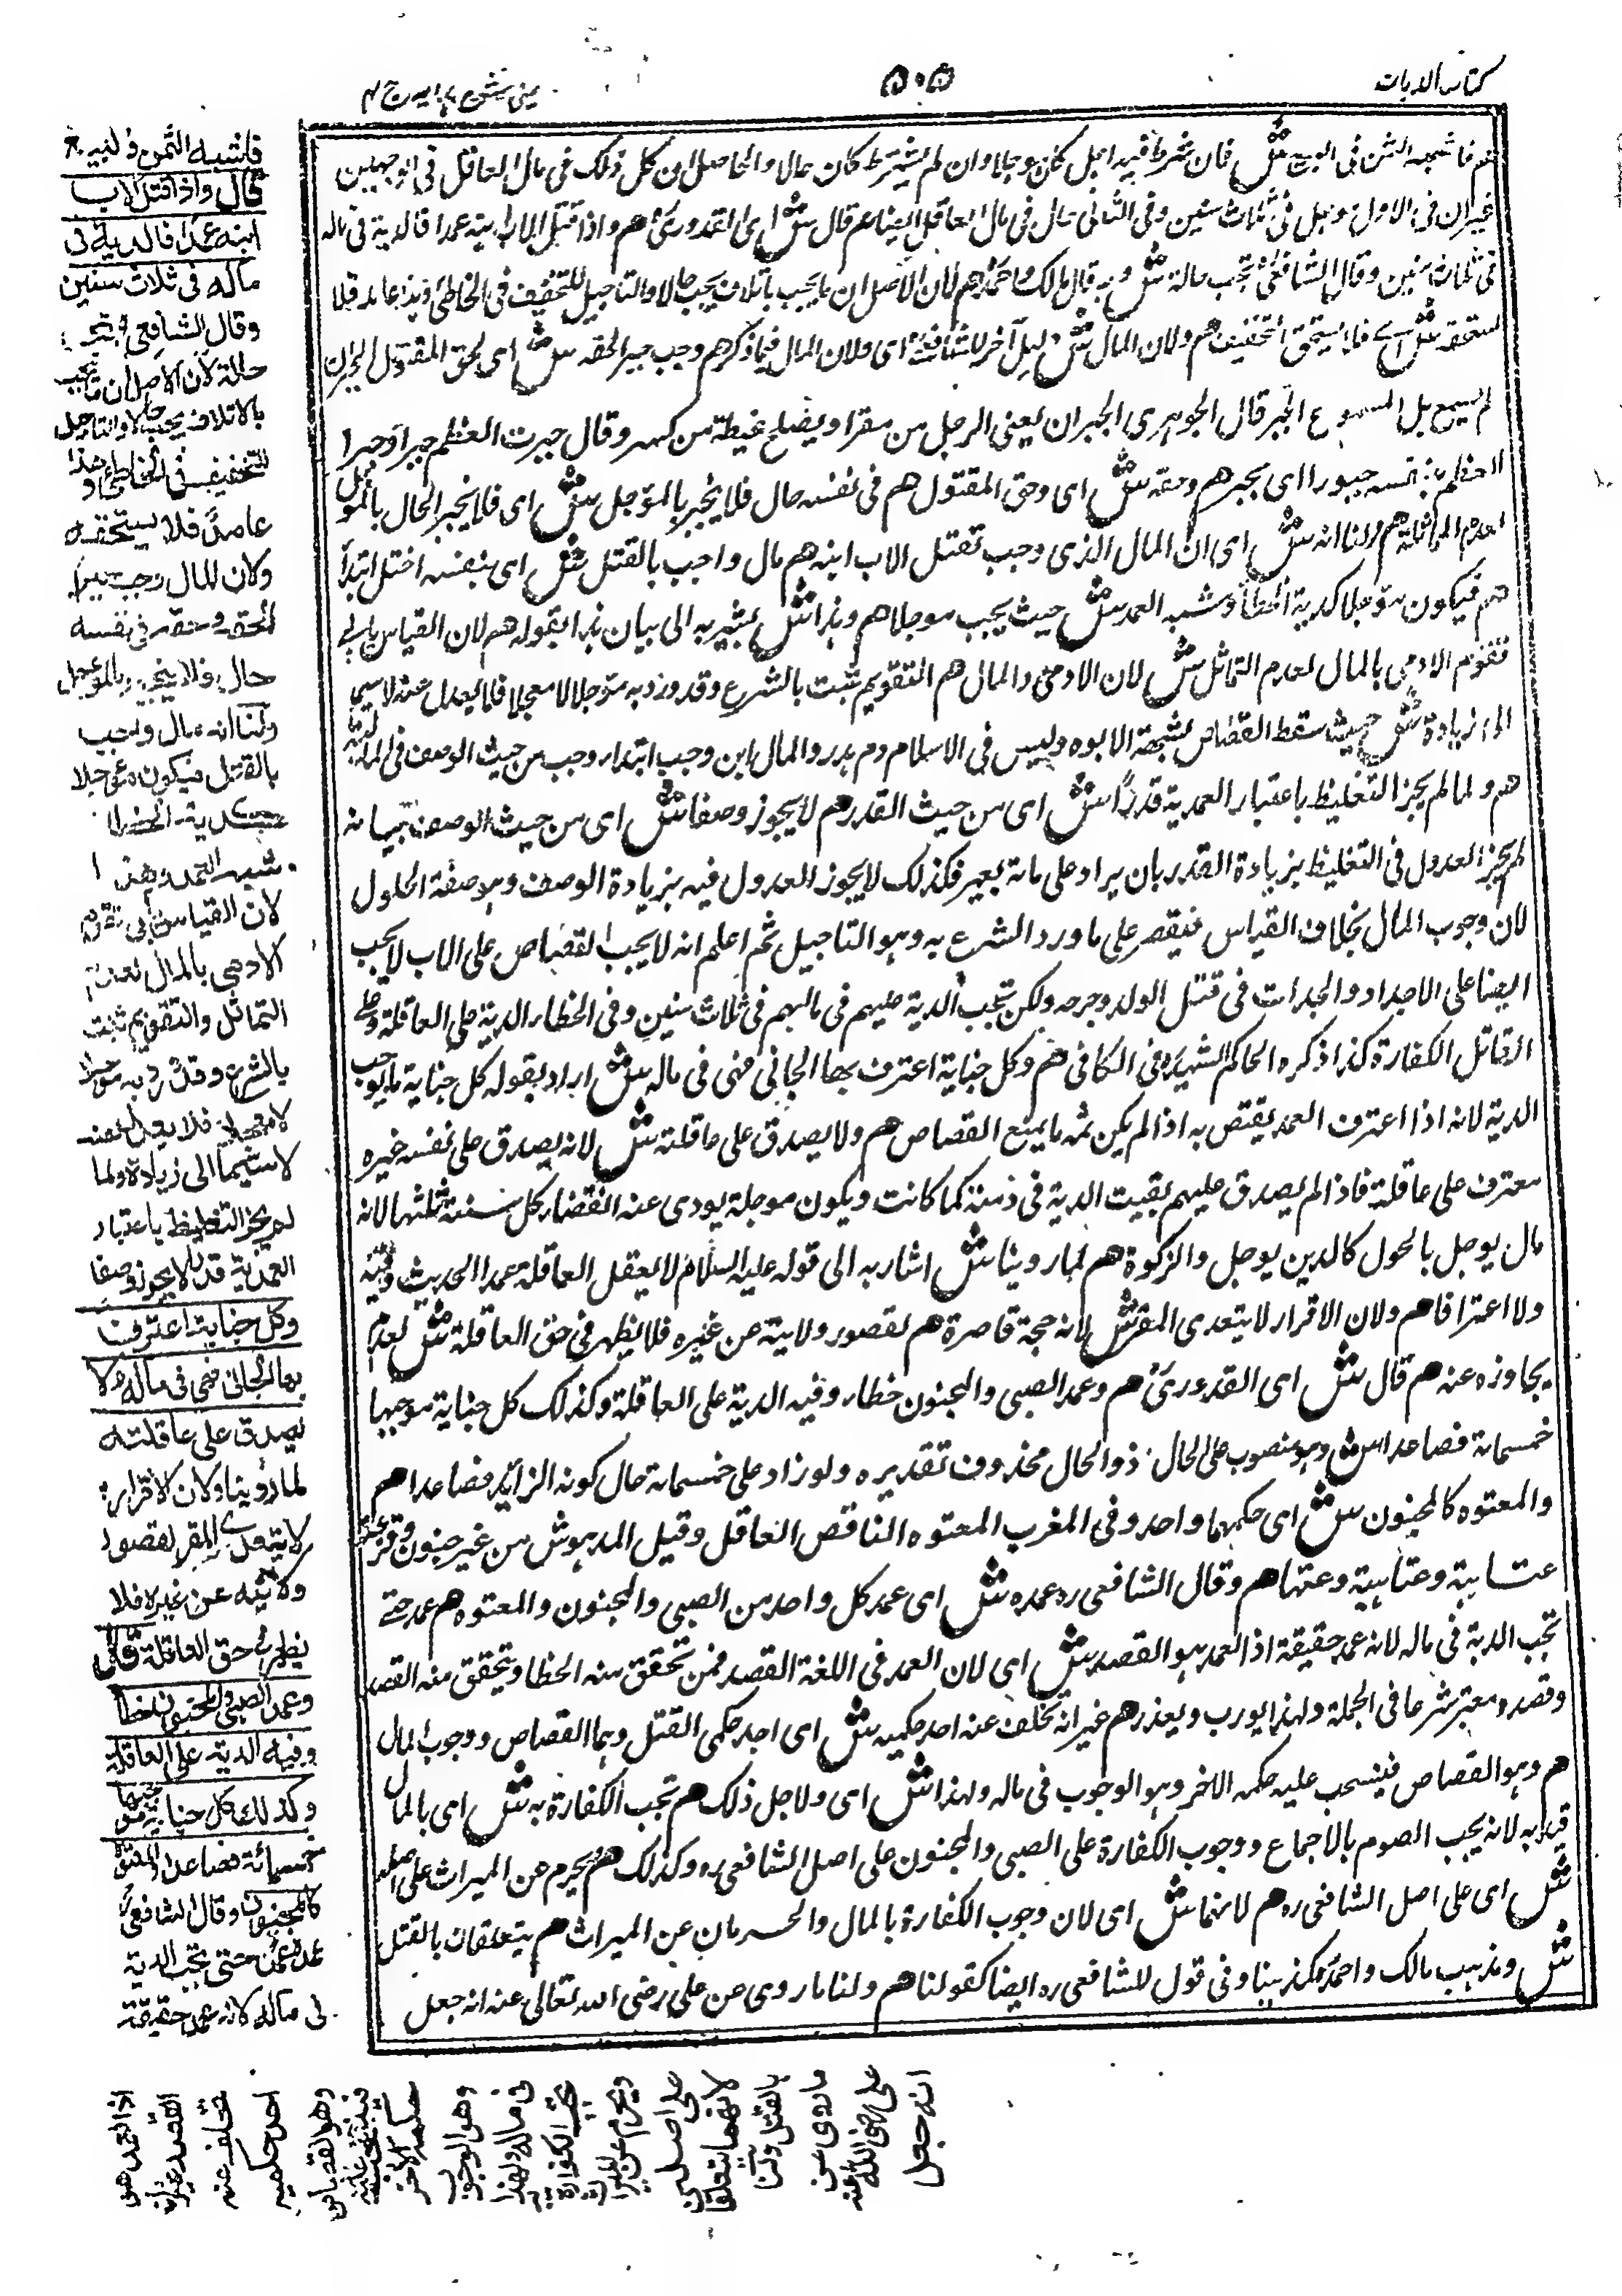 كتاب الديات
۵۰۵
عينى شرح هدايه ج ۴
هم فاشبه الثمن فى البيع ش فان شرط فيه اجل كان موجلا وان لم يشترط كان حالا والحاصل ان كل ذلك فى مال العاقل فى الوجهين
غيران فى الاول وجبل فى ثلاث سنين وفى الثانى حال فى مال العاقل ايضا هم قال ش اى القدورىؒ هم واذا قتل الاب ابنه عمدا فالدية فى ماله
فى ثلاث سنين وقال الشافعىؒ تجب حالة ش وبه قال مالك واحمدؒ هم لان الاصل ان ما يجب بالاتلاف يجب حالا والتاجيل للتخفيف فى الخاطئ وهذا عامد فلا
يستحقه ش اى فلا يستحق التخفيف هم ولان المال ش دليل آخر للشافعىؒ اى ولان المال فيما ذكر هم وجب جبر الحقه ش اى لحق المقتول الجبران
لم يسمع بل المسموع الجبر قال الجوهرى الجبران يغنى الرجل من فقر او يصلح عظمه من كسر وقال جبرت العظم جبرا وجبر
العظم بنفسه جبورا اى يجبر هم وحقه ش اى وحق المقتول هم فى نفسه حال فلا ينجبر بالموجل ش اى فلا يجبر الحال بالموجل
لعدم المماثلة هم ولنا انه ش اى ان المال الذى وجب بقتل الاب ابنه هم مال واجب بالقتل ش اى بنفس القتل ابتدأ
هم فيكون موجلا كدية الخطأ وشبه العمد ش حيث يجب موجلا هم وهذا ش يشير به الى بيان هذا بقوله هم لان القياس يابى
تقوم الادمى بالمال لعدم التماثل ش لان الادمى والمال هم التقويم ثبت بالشرع وقد ورد به موجلا لا معجلا فلا يعدل عنه لا سيما
الى زيادة ش حيث سقط القصاص بشبهة الابوه وليس فى الاسلام دم هدر والمال اين وجب ابتدار وجب من حيث الوصف فى المالية
هم ولما لم يجز التغليظ باعتبار العمدية قدرًا ش اى من حيث القدر هم لا يجوز وصفا ش اى من حيث الوصف بيانه
لم يجز العدول فى التغليظ بزيادة القدر بان يراد على مائة بعير فكذلك لا يجوز العدول فيه بزيادة الوصف وهو صفة الحلول
لان وجوب المال بخلاف القياس فيقصر على ما ورد الشرع به وهو التاجيل ثم اعلم انه لا يجب القصاص على الاب لا يجب
ايضا على الاجداد والجدات فى قتل الولد وجرحه ولكن تجب الدية عليهم فى مالهم فى ثلاث سنين وفى الخطار الدية على العاقلة وعلى
القاتل الكفارة كذا ذكره الحاكم الشهيدؒ فى الكافى هم وكل جناية اعترف بها الجانى فهى فى ماله ش اراد بقوله كل جناية ما يوجب
الدية لانه اذا اعترف العمد يقتص به اذا لم يكن ثمه ما يمنع القصاص هم ولا يصدق على عاقلته ش لانه يصدق على نفسه غيره
معترف على عاقلة فاذا لم يصدق عليهم بقيت الدية فى ذمته كما كانت ويكون موجلة يودى عند انقضار كل سنة ثلثها لانه
مال يوجل بالحول كالدين يوجل والزكوة هم لما روينا ش اشار به الى قوله عليه السلام لا يعقل العاقلة عمدا الحديث وفيه
ولا اعترافا هم ولان الاقرار لا يتعدى المقر ش لانه حجة قاصرة هم لقصور ولايته عن غيره فلا يظهر فى حق العاقلة ش لعدم
يجاوزه عنه هم قال ش اى القدورىؒ هم وعمد الصبى والمجنون خطار وفيه الدية على العاقلة وكذلك كل جناية موجبها
خمسمائة فصاعدا ش وهو منصوب على الحال ذو الحال محذوف تقديره ولو زاد على خمسمائة حال كونه الزائد فصاعدا هم
والمعتوه كالمجنون ش اى حكمهما واحد وفى المغرب المعتوه الناقص العاقل وقيل المدهوش من غير جنون وقد عته
عتاهية وعتاهية وعتها هم وقال الشافعى ره عمده ش اى عمد كل واحد من الصبى والمجنون والمعتوه هم عمد حتى
تجب الدية فى ماله لانه عمد حقيقة اذ العمد هو القصد ش اى لان العمد فى اللغة القصد فمن تحقق منه الخطا ويتحقق منه القصد
وقصده معتبر شرعا فى الجملة ولهذا يورب ويعذر هم غير انه تخلف عنه احد حكميه ش اى احد حكمى القتل وهما القصاص ووجوب المال
هم وهو القصاص فينسحب عليه حكمه الاخر وهو الوجوب فى ماله ولهذا ش اى ولاجل ذلك هم تجب الكفارة به ش اى بالمال
قيد به لانه يجب الصوم بالاجماع ووجوب الكفارة على الصبى والمجنون على اصل الشافعى ره وكذلك هم يحرم عن الميراث على اصله
ش اى على اصل الشافعى ره هم لانهما ش اى لان وجوب الكفارة بالمال والحرمان عن الميراث هم يتعلقان بالقتل
ش ومذهب مالك واحمدؒ كمذهبنا وفى قول للشافعى ره ايضا كقولنا هم ولنا ما روى عن على رضى الله تعالى عنه انه جعل
فاشبه الثمن فى البيع
قال واذا قتل الاب
ابنه عمدا فالدية فى
ماله فى ثلاث سنين
وقال الشافعى تجب
حالة لان الاصل ان ما يجب
بالاتلاف يجب حالا والتاجيل
للتخفيف فى الخاطئ وهذا
عامد فلا يستحقه
ولان المال وجب جبرا
لحقه وحقه فى نفسه
حال فلا ينجبر بالموجل
ولنا انه مال واجب
بالقتل فيكون موجلا
كدية الخطا
وشبه العمد وهذا
لان القياس يابى تقوم
الادمى بالمال لعدم
التماثل والتقويم ثبت
بالشرع وقد ورد به موجلا
لا معجلا فلا يعدل عنه
لا سيما الى زيادة ولما
لم يجز التغليظ باعتبار
العمدية قدرا لا يجوز وصفا
وكل جناية اعترف
بها الجانى فهى فى ماله ولا
يصدق على عاقلته
لما روينا ولان الاقرار
لا يتعدى المقر لقصور
ولايته عن غيره فلا
يظهر فى حق العاقلة قال
وعمد الصبى والمجنون خطأ
وفيه الدية على العاقلة
وكذلك كل جناية موجبها
خمسمائة فصاعدا والمعتوه
كالمجنون وقال الشافعىؒ
عمده عمد حتى تجب الدية
فى ماله لانه عمد حقيقة
اذ العمد هو
القصد غير انه
تخلف عنه
احد حكميه
وهو القصاص
فينسحب عليه
حكمه الاخر
وهو الوجوب
فى ماله ولهذا
تجب الكفارة به
ويحرم عن الميراث
على اصله
لانهما يتعلقان
بالقتل ولنا
ما روى عن
على رضى الله عنه
انه جعل